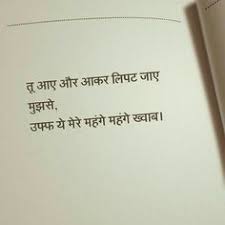 तू आए और आकर लिपट जाए
मुझसे,
उफ्फ ये मेरे महंगे महंगे ख्वाब।